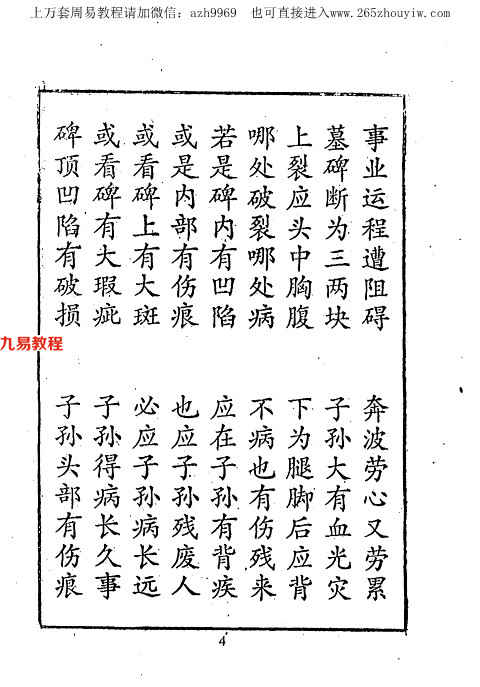 上万套周易教程请加微信：azh9969 也可直接进入www.265zhouyiw.com
事业运程遭阻碍 奔波劳心又劳累
墓碑断为三两块 子孙大有血光灾
上裂应头中胸腹 下为腿脚后应背
哪处破裂哪处病 不病也有伤残来
若是碑内有凹陷 应在子孙有背疾
或是内部有伤痕 也应子孙残废人
或看碑上有大斑 必应子孙病长远
或看碑有大瑕疵 子孙得病长久事
碑顶凹陷有破损 子孙头部有伤痕
九易教程
4